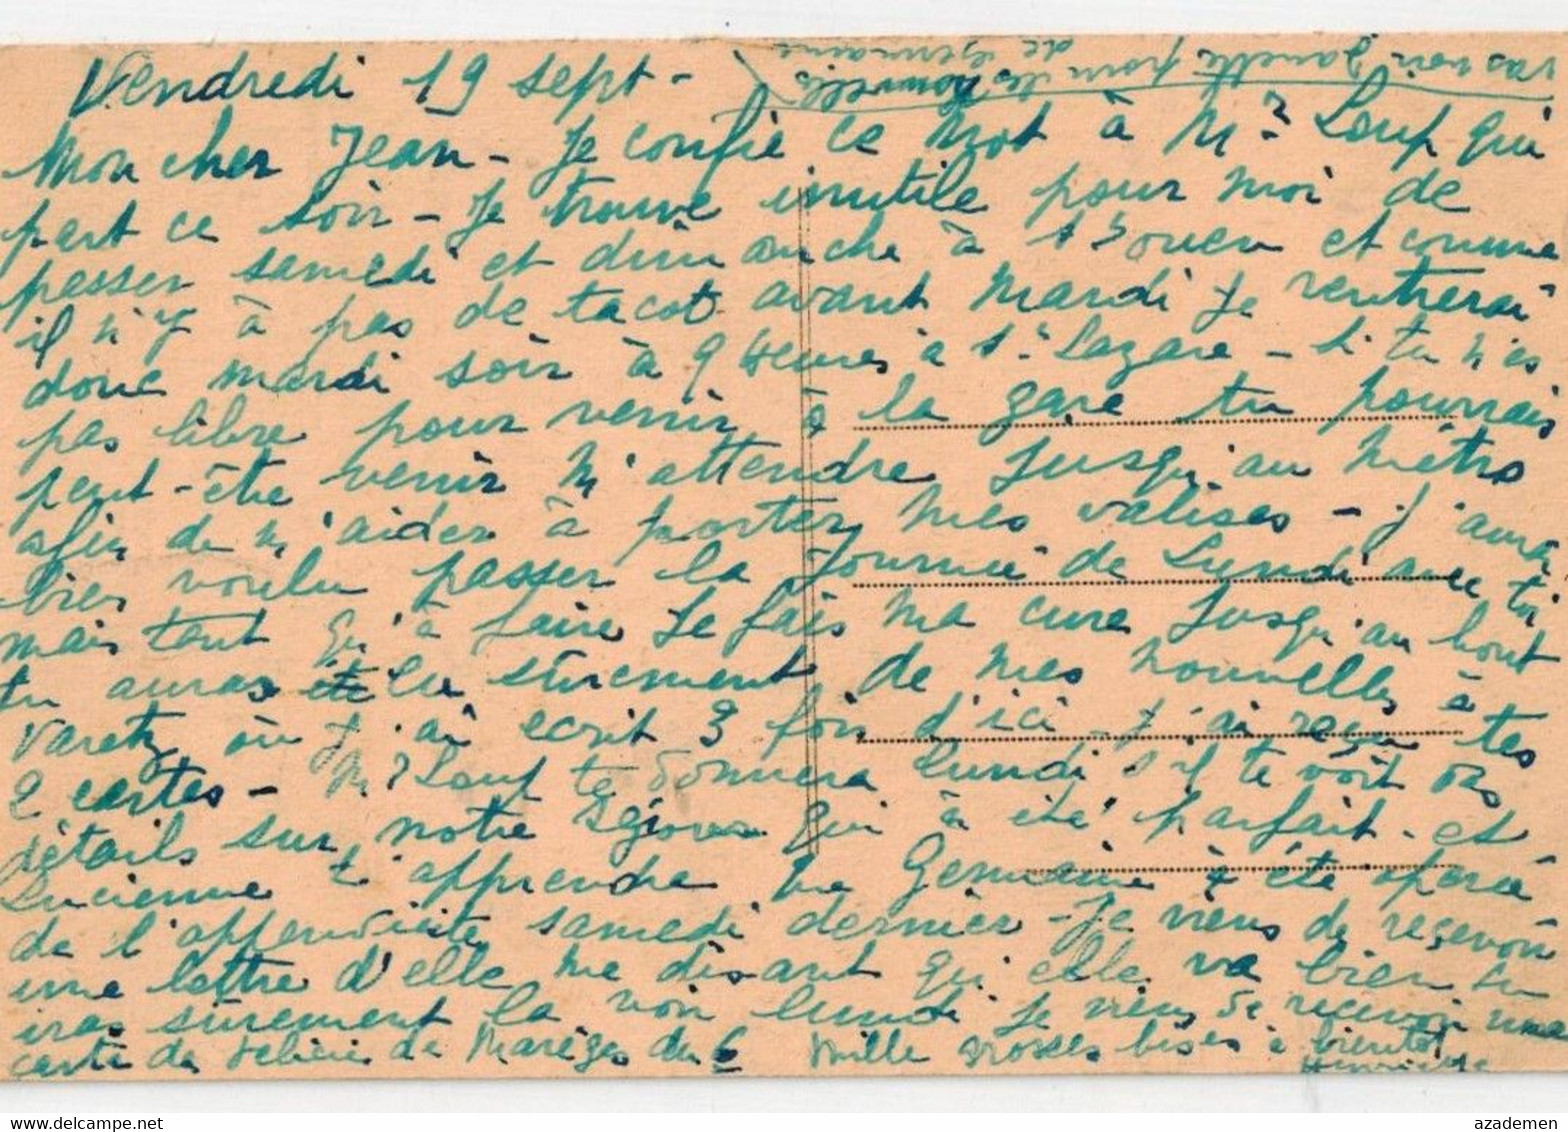 vas voir Ginette pour les nouvelles
de Germaine
Vendredi 19 sept -
Mon cher Jean - Je confie ce mot à Mr Leuf qui
part ce soir - Je trouve inutile pour moi de
passer samedi et dimanche à St Ouen et comme
il n'y à pas de tacot avant Mardi Je rentrerai
donc mardi soir à 9 Heures à St Lazare - Si tu n'es
pas libre pour venir à la gare tu pourrais
peut-être venir m'attendre Jusqu'au métro
afin de m'aider à porter mes valises - J'aurai
bien voulu passer la Journée de Lundi avec toi
mais tant qu'à faire Je fais ma cure Jusqu'au bout
tu auras été lu sûrement de mes nouvelles à
Varetz où J'ai ecrit 3 fois d'ici - J'ai reçu tes
2 cartes - Mr Leuf te donnera Lundi s'il te voit des
détails sur notre séjour qui à été parfait - et
Lucienne t'apprendra que Germaine à été opérée
de l'appendicite samedi dernier - Je viens de reçevoir
une lettre d'elle me disant qu'elle va bien tu
iras sûrement la voir lundi je viens de recevoir une
carte de de Marèges du 6 Mille grosses bises à bientôt
Henriette
azademen